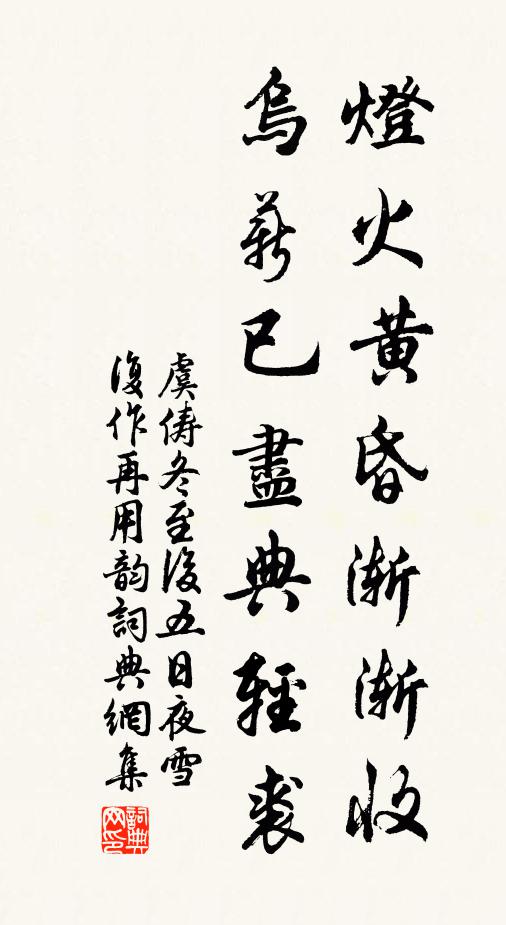 燈火黃昏漸漸收
烏薪已盡典輕裘
虞儔冬至後五日夜雪
復作再用韵詞典網集
詞典網印